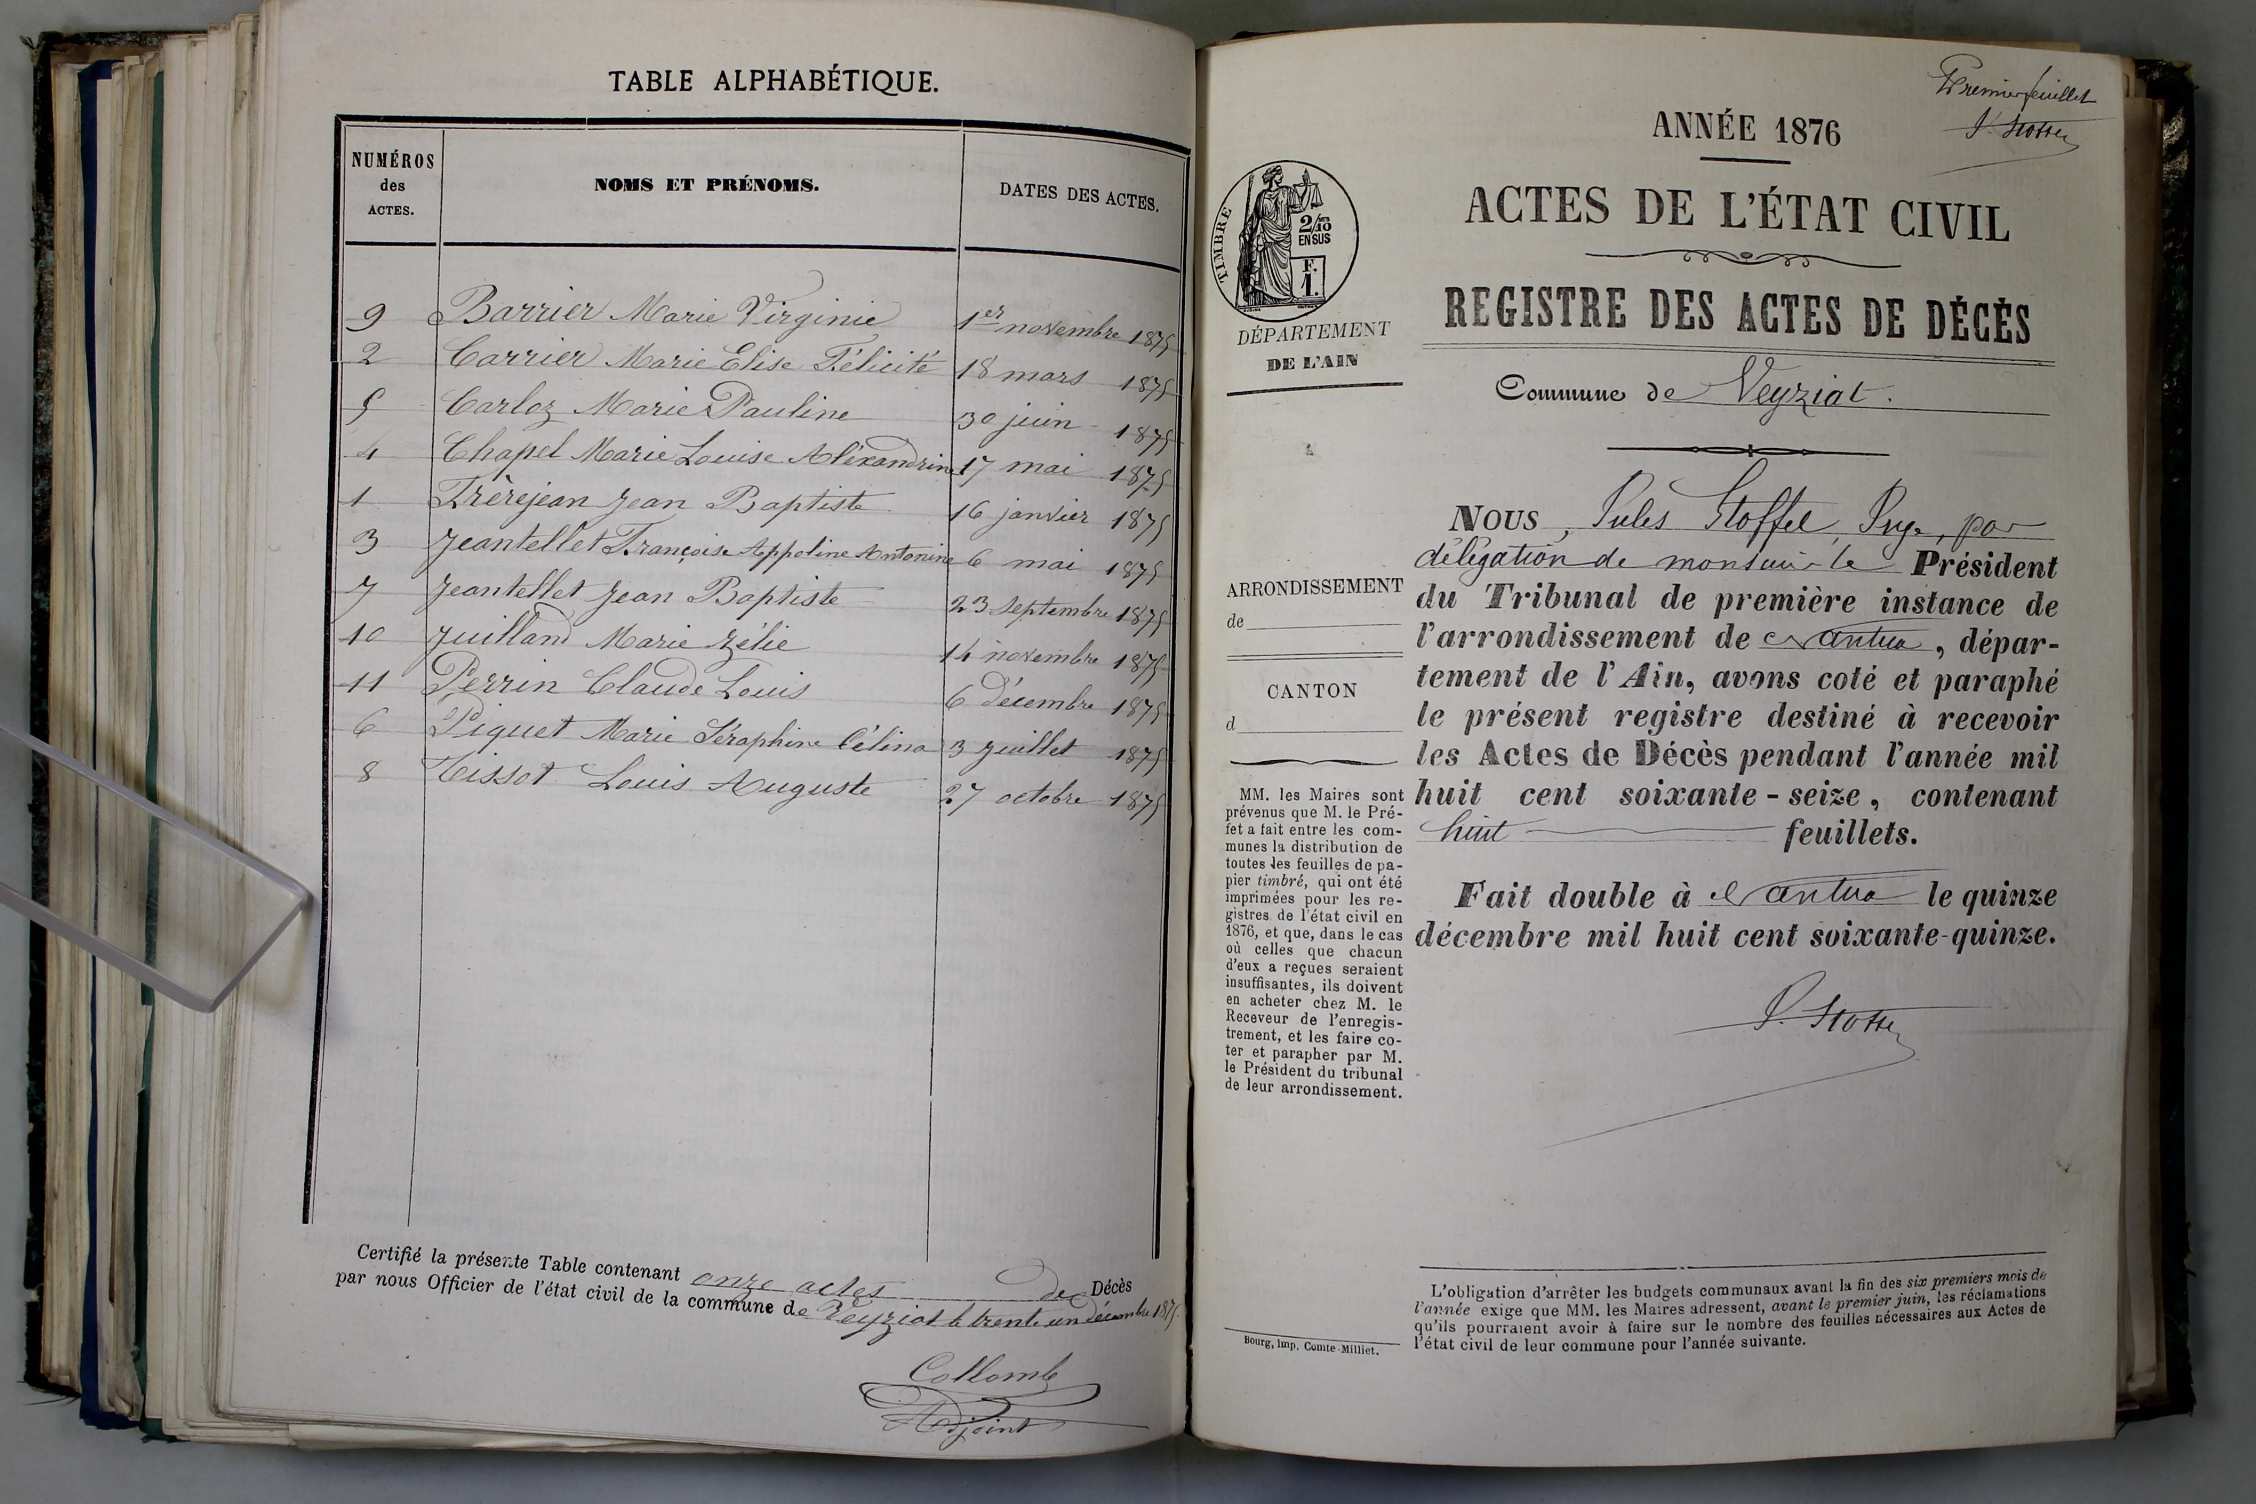 TABLE ALPHABÉTIQUE.
NUMÉROS
des
ACTES.
NOMS ET PRÉNOMS.
DATES DES ACTES.
9 Barrier Marie Virginie 1er novembre 1875
2 Carrier Marie Elise Félicité 18 mars 1875
5 Carloz Marie Pauline 30 juin 1875
4 Chapel Marie Louise Aléxandrine 17 mai 1875
1 Frèrejean Jean Baptiste 16 janvier 1875
3 Jeantellet Françoise Appoline Antonine 6 mai 1875
7 Jeantellet Jean Baptiste 23 septembre 1875
10 Juilland Marie Zélie 14 novembre 1875
11 Perrin Claude Louis 6 décembre 1875
6 Piquet Marie Séraphine Célina 3 juillet 1875
8 Tissot Louis Auguste 27 octobre 1875
Certifié la présente Table contenant onze actes de Décès
par nous Officier de l'état civil de la commune de Veyziat le trente un décembre 1875
Collomb
Adjoint
Premier feuillet
J. Stoffel
ANNÉE 1876
ACTES DE L'ÉTAT CIVIL
REGISTRE DES ACTES DE DÉCÈS
TIMBRE
2/10
EN SUS
F.
1.
DÉPARTEMENT
DE L'AIN
Commune de Veyziat.
ARRONDISSEMENT
de
CANTON
d
MM. les Maires sont
prévenus que M. le Pré-
fet a fait entre les com-
munes la distribution de
toutes les feuilles de pa-
pier timbré, qui ont été
imprimées pour les re-
gistres de l'état civil en
1876, et que, dans le cas
où celles que chacun
d'eux a reçues seraient
insuffisantes, ils doivent
en acheter chez M. le
Receveur de l'enregis-
trement, et les faire co-
ter et parapher par M.
le Président du tribunal
de leur arrondissement.
Bourg, imp. Comte-Milliet.
NOUS, Jules Stoffel, Juge, par
délégation de monsieur le Président
du Tribunal de première instance de
l'arrondissement de Nantua, dépar-
tement de l'Ain, avons coté et paraphé
le présent registre destiné à recevoir
les Actes de Décès pendant l'année mil
huit cent soixante-seize, contenant
huit feuillets.
Fait double à Nantua le quinze
décembre mil huit cent soixante-quinze.
J. Stoffel
L'obligation d'arrêter les budgets communaux avant la fin des six premiers mois de
l'année exige que MM. les Maires adressent, avant le premier juin, les réclamations
qu'ils pourraient avoir à faire sur le nombre des feuilles nécessaires aux Actes de
l'état civil de leur commune pour l'année suivante.